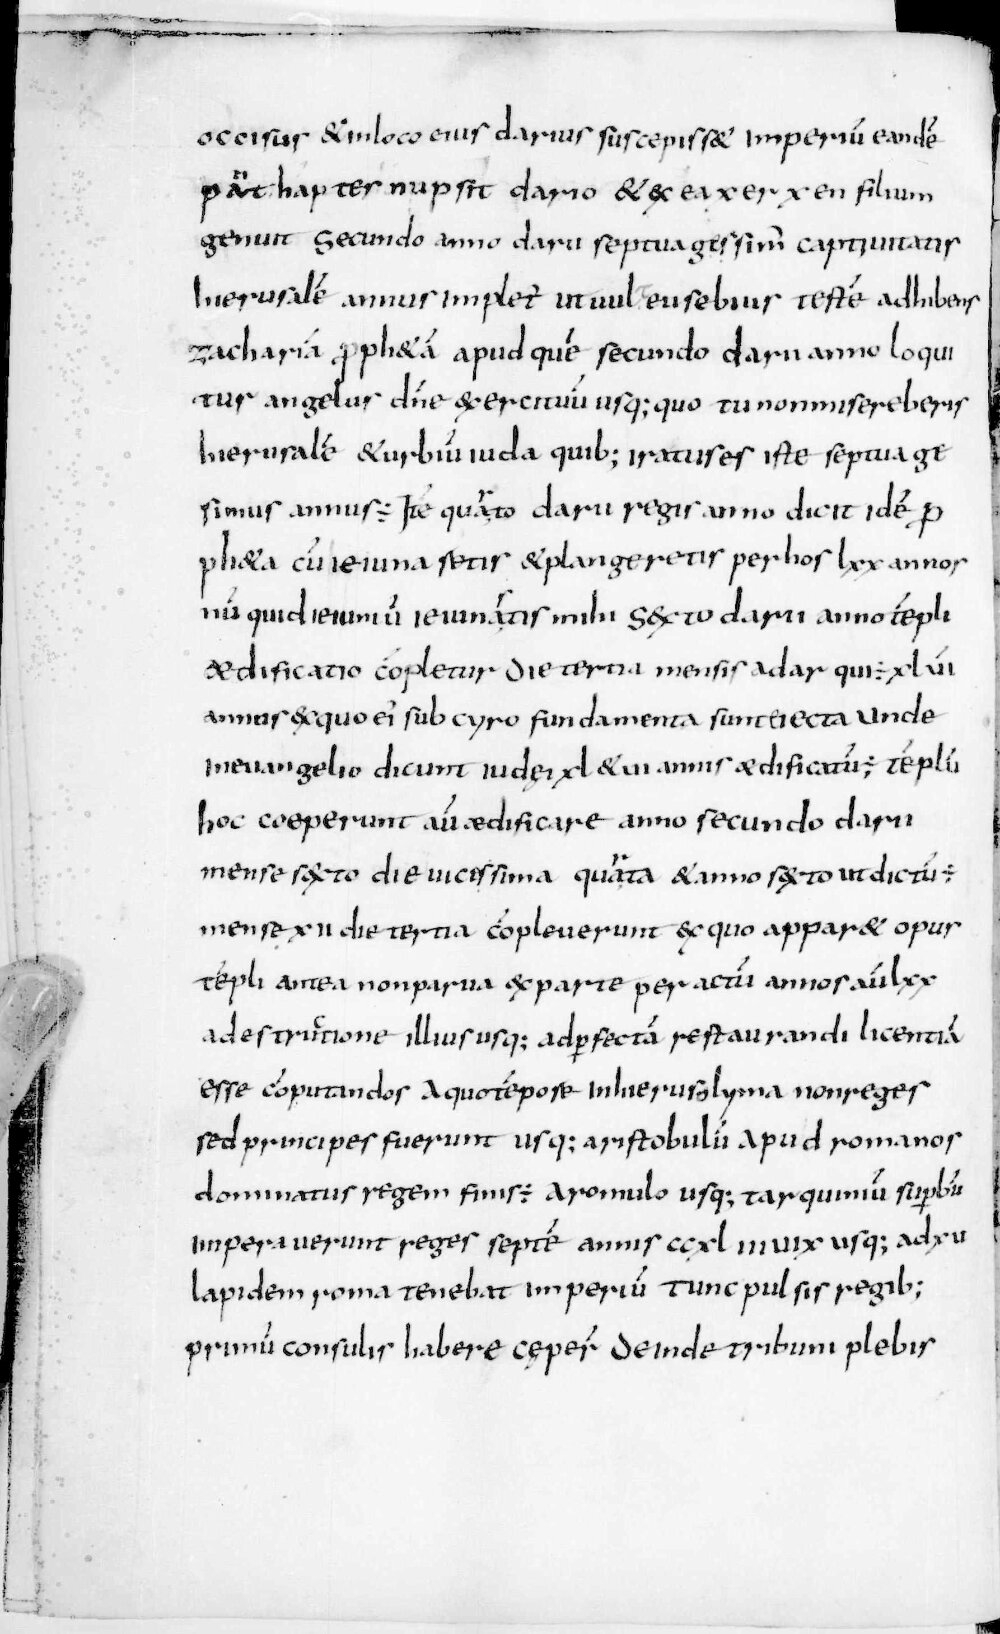 occisus & inloco eius darius suscepiss& imperiū eandē
pat hap ter nupsit dario & ex ea xer xen filium
genuit Secundo anno darii septuagissim̄ captiuitatis
hierusalē annus implet̄ ut uult eusebius testē adhibens
zachariā ꝓph&ā apud quē secundo darii anno loqui
tur angelus dn̄e exercituū usq; quo tu nonmisereberis
hierusalē & urbiū iuda quib; iratus es iste septuage
simus annus÷ Itē quarto darii regis anno dicit idē ꝓ
ph&a cū ieiunasetis & plangeretis per hos lxx annos
nū quid ieiuniū ieiunastis mihi Sexto darii anno tēpli
ædificatio cōpletur Die tertia mensis adar qui÷ xlui
annus exquo ei sub cyro fundamenta sunt iecta Unde
ineuangelio dicunt iudęi xl & ui annis ædificatū÷ tēplū
hoc coeperunt aū ædificare anno secundo darii
mense sexto die uicissima quarta & anno sexto ut dictū÷
mense xii die tertia cōpleuerunt ex quo appar& opus
tēpli antea nonparua exparte peractū annos aū lxx
adestructione illius usq; adꝑfectā restaurandi licentiā
esse cōputandos Aquo tēpore inhierusolyma nonreges
sed principes fuerunt usq; aristobulū Apud romanos
dominatus regem finis÷ Aromulo usq; tarquiniū suꝑbū
imperauerunt reges septē annis ccxl iii uix usq; adxu
lapidem roma tenebat imperiū Tunc pulsis regib;
primū consulis habere cęper̄ Deinde tribuni plebis